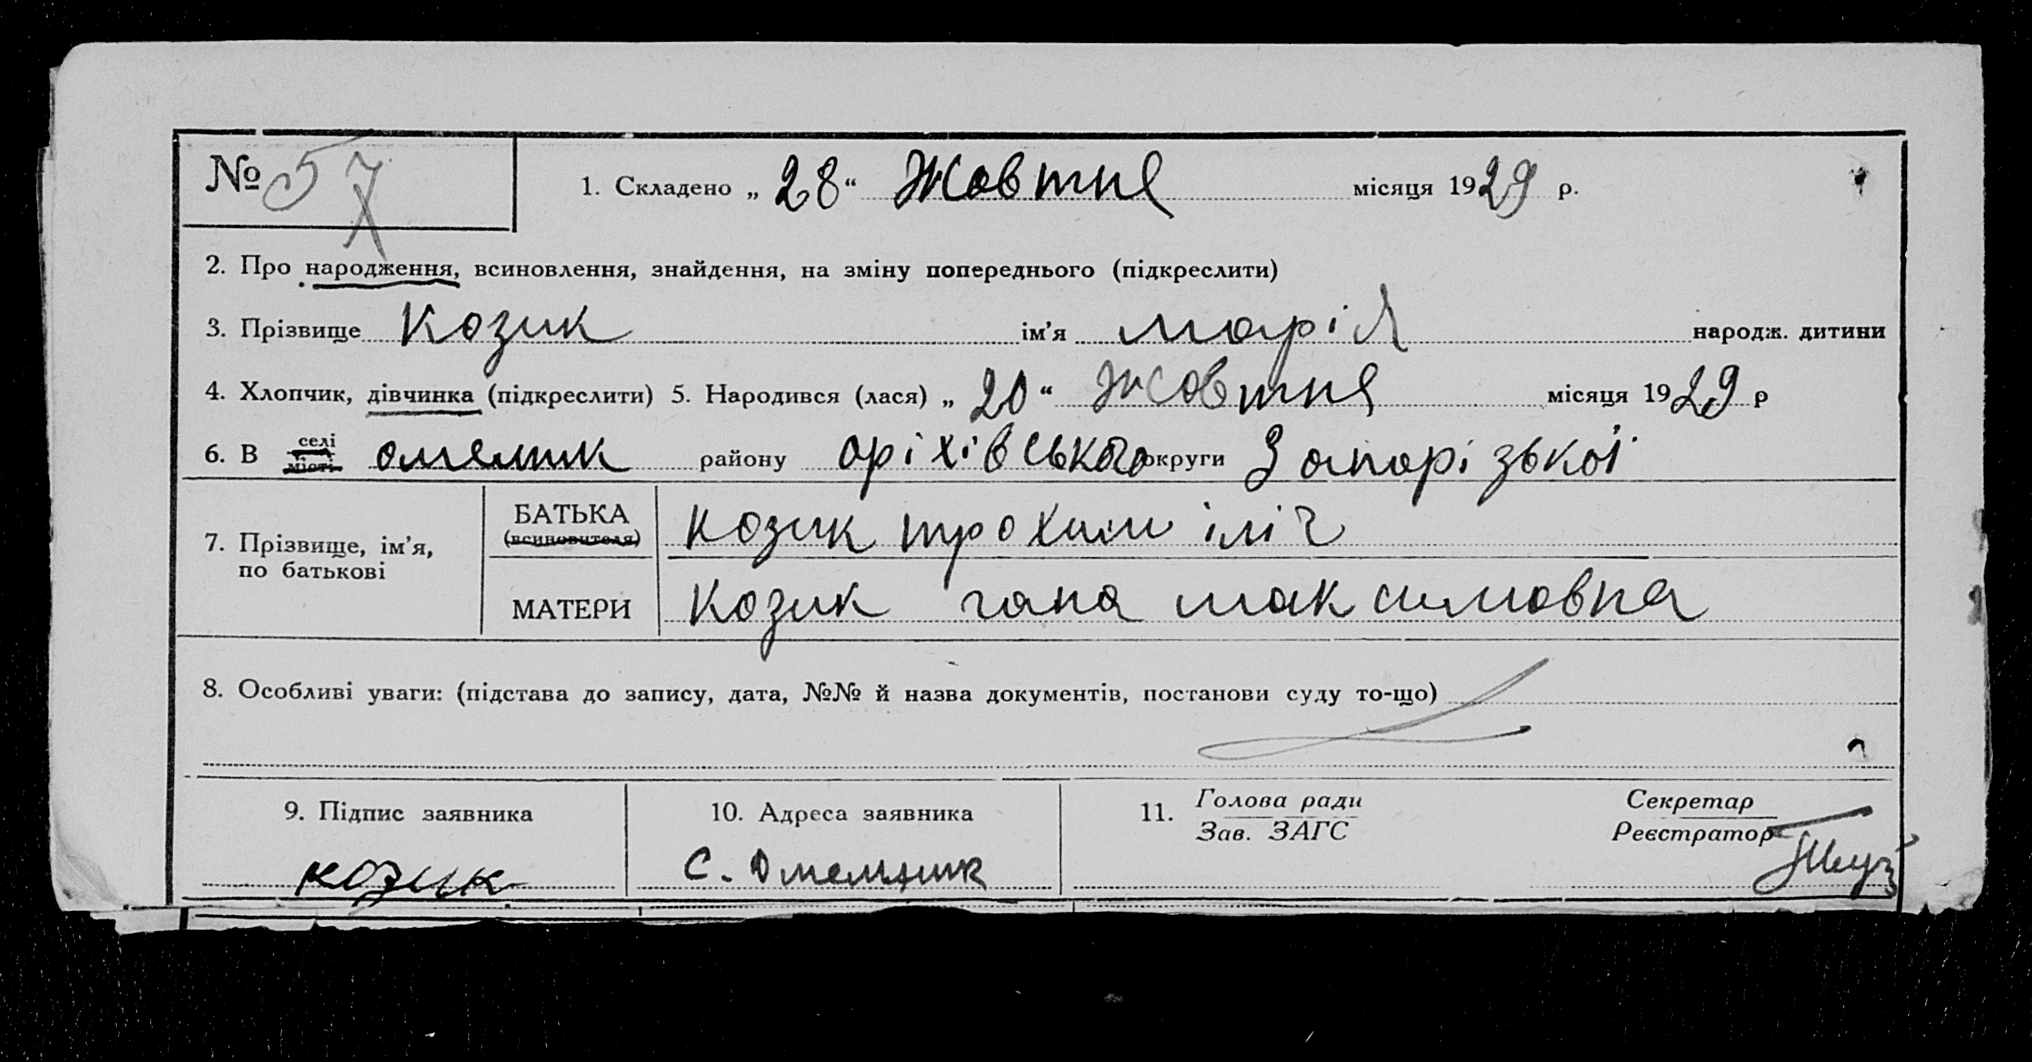 № 57
1. Складено „ 28 “ Жовтня місяця 1929 р.
2. Про народження, всиновлення, знайдення, на зміну попереднього (підкреслити)
3. Прізвище Козик ім’я марія народж. дитини
4. Хлопчик, дівчинка (підкреслити) 5. Народився (лася) „ 20 “ Жовтня місяця 1929 р
6. В селі місті омелник району оріхівського округи Запорізької
7. Прізвище, ім’я, по батькові
БАТЬКА (всиновителя) козик трохим іліч
МАТЕРИ козик гана максимовна
8. Особливі уваги: (підстава до запису, дата, №№ й назва документів, постанови суду то-що)
9. Підпис заявника 10. Адреса заявника 11. Голова ради Секретар
Зав. ЗАГС Реєстратор
козик с. Омельник